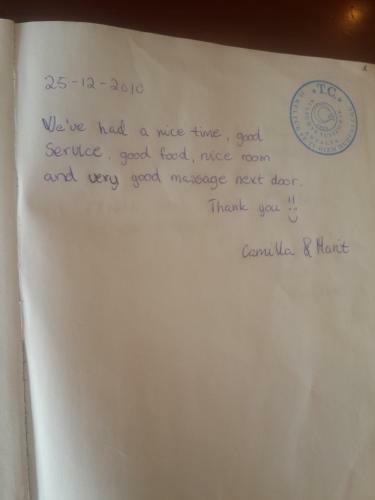 25-12-2010
T.C.
We've had a nice time, good
service, good food, nice room
and very good massage next door.
Thank you !!
Camilla & Marit